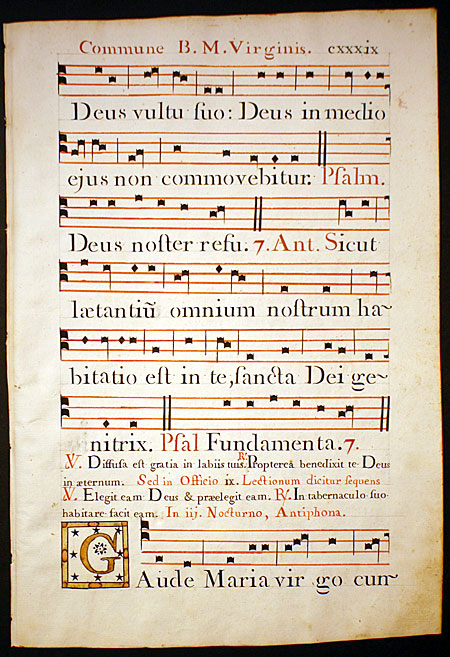 Commune B. M. Virginis. cxxxix
Deus vultu ſuo: Deus in medio
ejus non commovebitur. Pſalm.
Deus noſter refu. 7. Ant. Sicut
lætantiū omnium noſtrum ha~
bitatio eſt in te, ſancta Dei ge~
nitrix. Pſal Fundamenta. 7.
V. Diffuſa eſt gratia in labiis tuis. R. Propterea benedixit te Deus
in æternum. Sed in Officio ix. Lectionum dicitur ſequens
V. Elegit eam Deus & præelegit eam. R. In tabernaculo ſuo
habitare facit eam. In iij. Nocturno, Antiphona.
GAude Maria vir go cun~